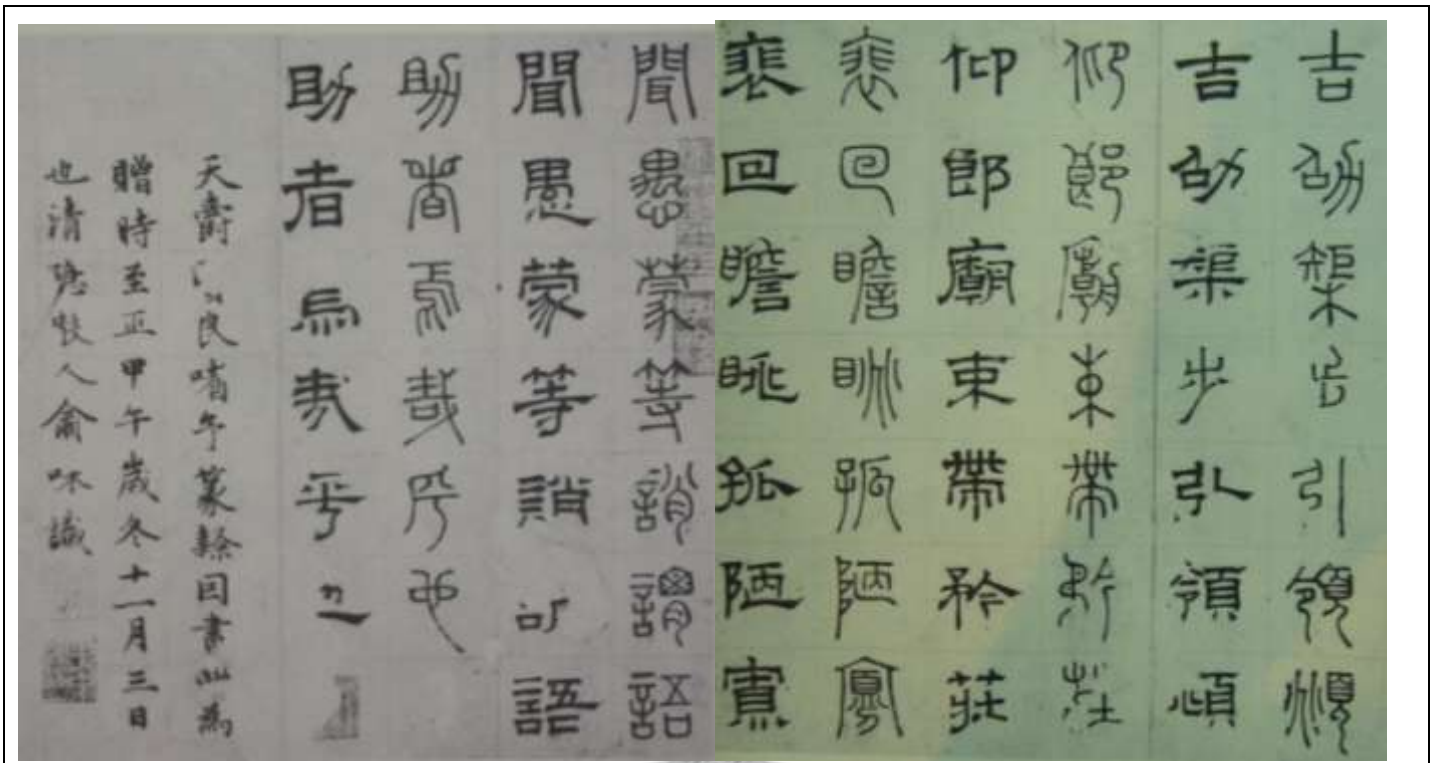 吉劭榘步引領頫
吉劭榘步引領頫
仰郎廟束帶矜莊
仰郎廟束帶矜莊
裵回瞻眺孤陋寡
裵回瞻眺孤陋寡
聞愚蒙等誚謂語
聞愚蒙等誚語
助者焉哉乎也
助者焉哉乎也
天爵良嗜予篆隸因書此為
贈時至正甲午歲冬十一月三日
也清隱散人俞和識